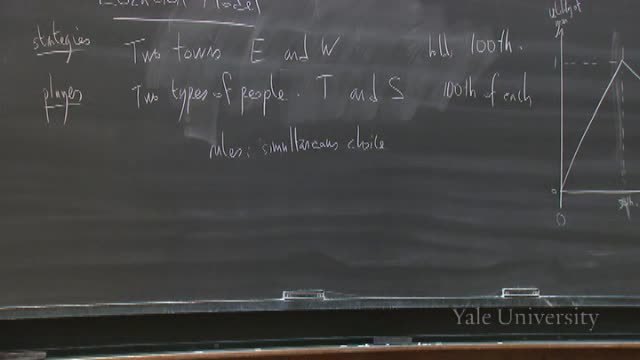 Location Model
strategies Two towns E and W holds 100th.
players Two types of people. T and S 100th of each
rules: simultaneous choice
utility of
1
0
0
Yale University